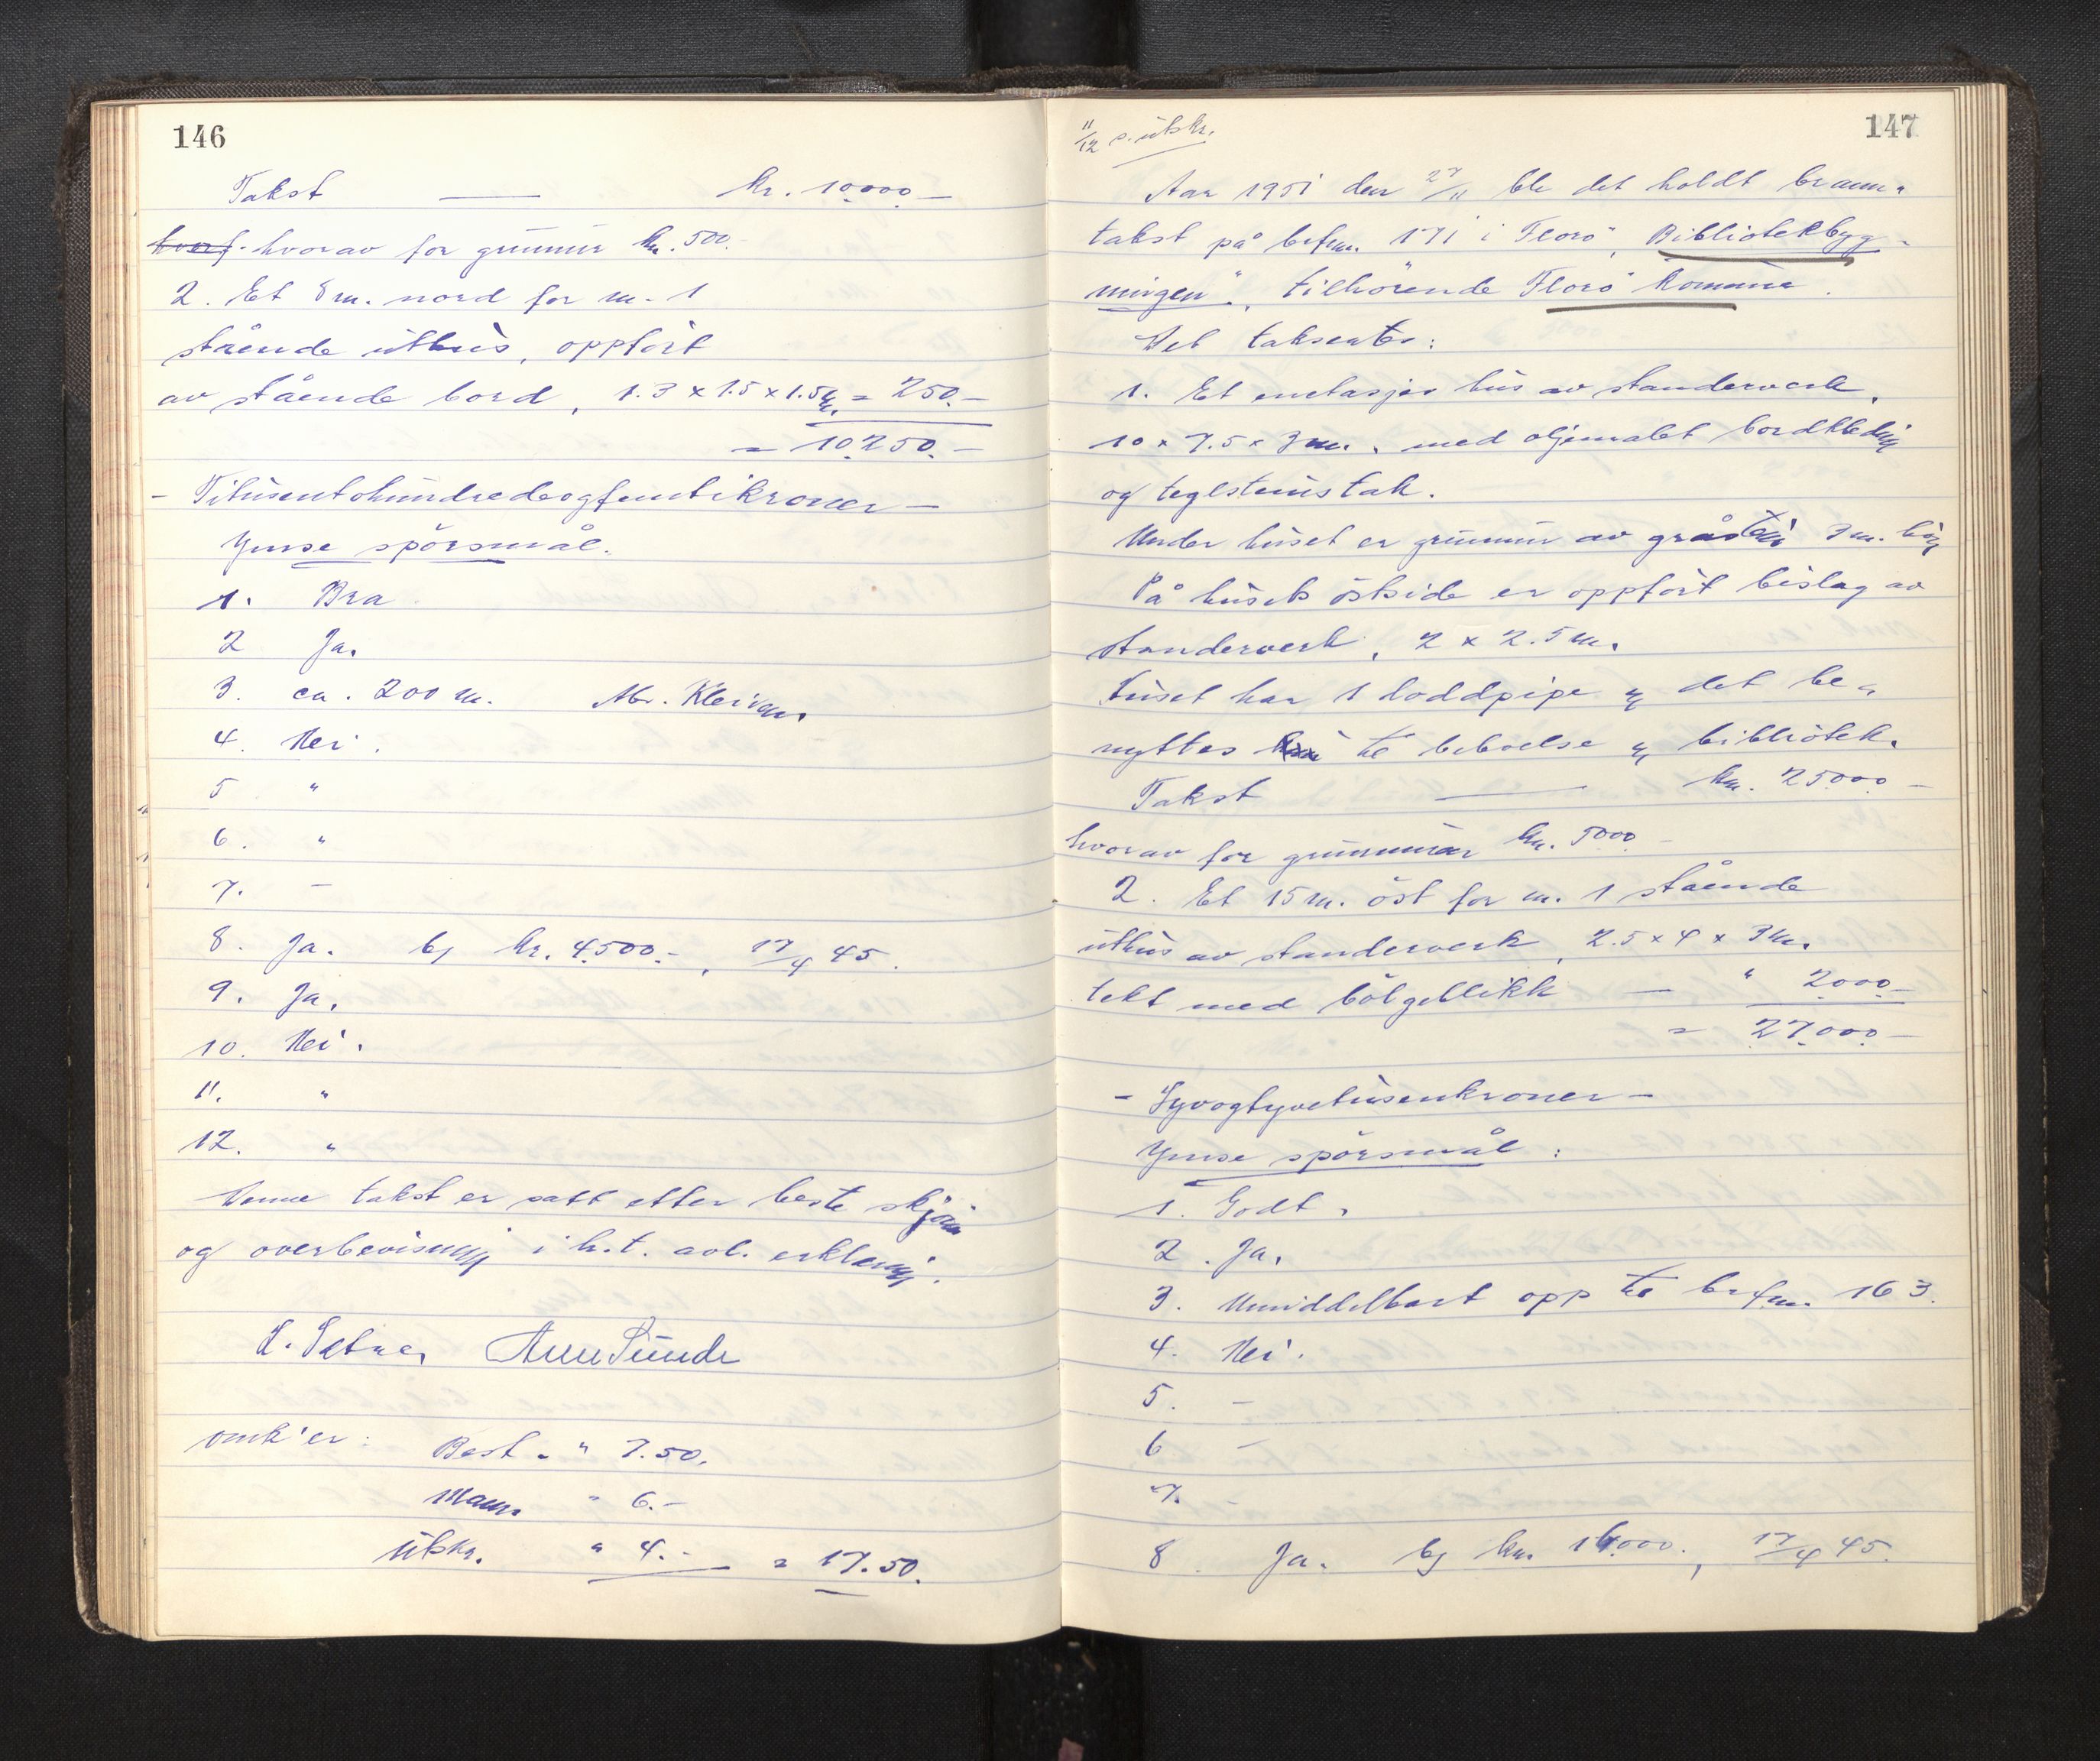 146
Takst — kr. 10.000.—
hvorf. hvorav for grunmur kr. 500.-
2. Et 8 m. nord for m. 1
stående uthus, oppfört
av stående bord, 1.3 x 1.5 x 1.5 m. = 250.—
= 10.250.—
- Titusentohundredeogfemtikroner —
Ymse spörsmål.
1. Bra
2 Ja.
3. ca. 200 m. Ab. Kleiven
4. Nei.
5 "
6. "
7. —
8. Ja. bf kr. 4.500.-, 17/4 45.
9. Ja.
10. Nei.
11. "
12. "
Denne takst er satt etter beste skjönn
og overbevisning i h.t. avl. erklæring.
omk'er: Best. " 7.50.
Mann. " 6.-
utskr. " 4.- = 17.50.
11/12 s. utskr.
147
Aar 1951 den 27/11 ble det holdt brann-
takst på brfnr. 171 i Florö, "Bibliotekbyg-
ningen", tilhörende Florö kommune.
Det takseres:
1. Et enetasjes hus av standerverk,
10 x 7.5 x 3 m., med oljemalet bordkledning
og teglsteinstak.
Under huset er grunmur av gråstein 3 m. höy
På husets östside er oppfört bislag av
standerverk, 2 x 2.5 m.
Huset har 1 loddpipe og det be-
nyttes til beboelse og bibliotek.
Takst — kr. 25.000.—
hvorav for grunmuren kr. 5000.—
2. Et 15 m. öst for m. 1 stående
uthus av standerverk, 2.5 x 4 x 3 m.
tekt med bölgeblikk — " 2.000.—
= 27.000.—
- Syvogtyvetusenkroner —
Ymse spörsmål:
1. Godt.
2. Ja.
3. Umiddelbart opp til brfnr. 163.
4. Nei.
5. —
6 —
7. —
8 Ja. bf kr. 16.000., 17/4 45.